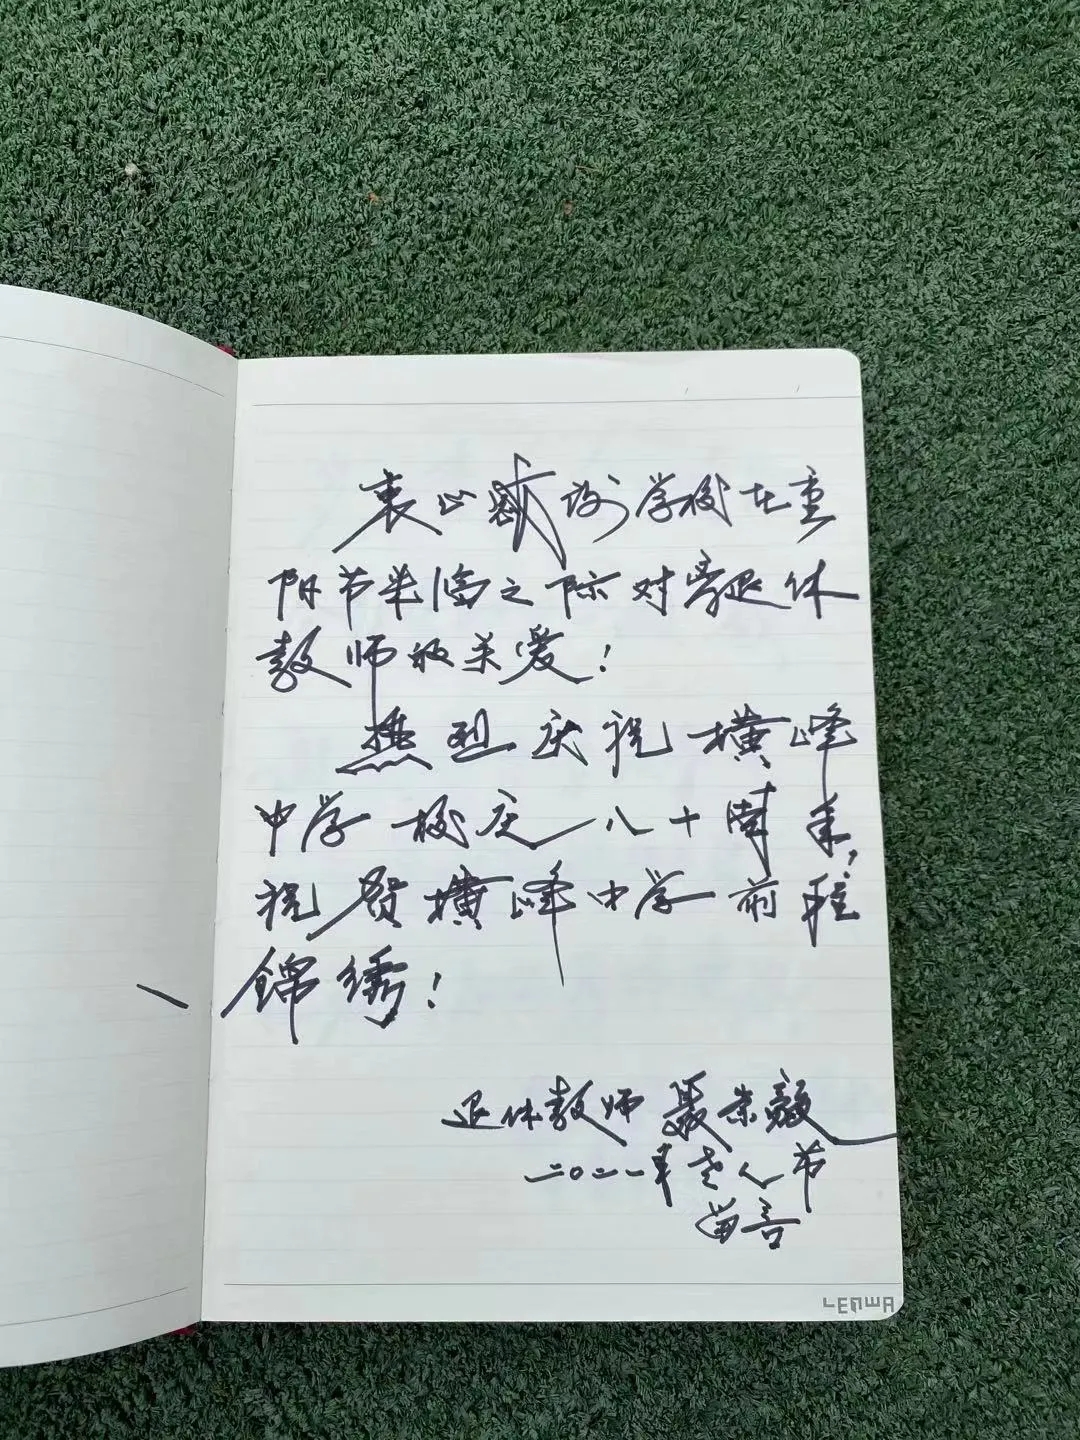 衷心感谢学校在重
阳节来临之际对离退休
教师的关爱！
热烈庆祝横峰
中学校庆八十周年，
祝贺横峰中学前程
锦绣！
退休教师 聂荣毅
二〇二一年老人节
留言
LENWA